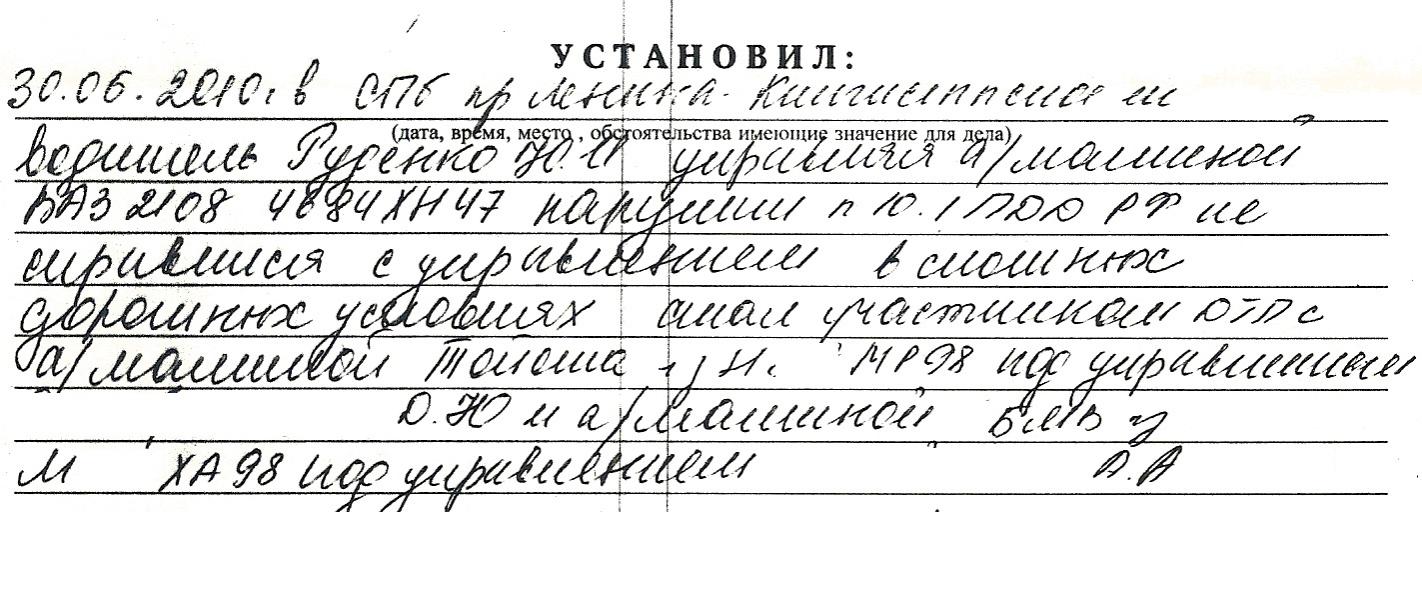 УСТАНОВИЛ:
30.06.2010г в СПб пр Ленина - Кингисеппское ш
(дата, время, место , обстоятельства имеющие значение для дела)
водитель Руденко Ю.И управляя а/машиной
ВАЗ 2108 4684ХН47 нарушил п 10.1 ПДД РФ не
справившися с управлением в сложных
дорожных условиях стал участником ДТП с
а/машиной Тойота г/н. МР98 под управлением
Д.Ю и а/машиной БМВ г/
М ХА98 под управлением А.А